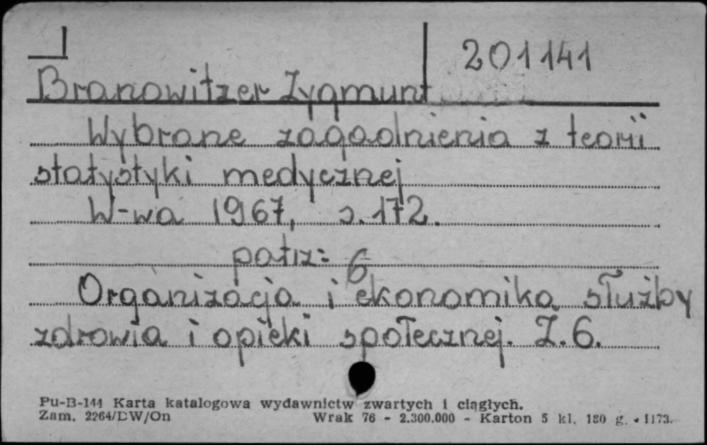 201141
Branowitzer Zygmunt
Wybrane zagadnienia z teorii
statystyki medycznej
W-wa 1967, s. 172.
patrz: 6
Organizacja i ekonomika służby
zdrowia i opieki społecznej. Z. 6.
Pu-B-144 Karta katalogowa wydawnictw zwartych i ciągłych.
Zam. 2264/DW/On Wrak 76 - 2.300.000 - Karton 5 kl. 180 g. - 1173.